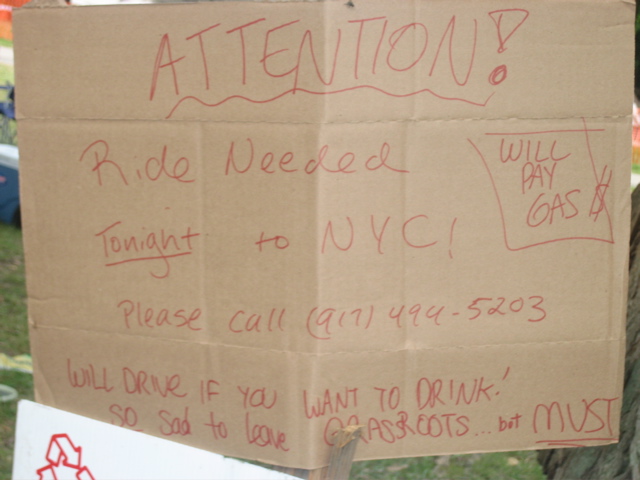 ATTENTION!
Ride Needed
Tonight to NYC!
WILL
PAY
GAS $
Please call (917) 494-5203
WILL DRIVE IF YOU WANT TO DRINK!
SO sad to leave GRASSROOTS... but MUST